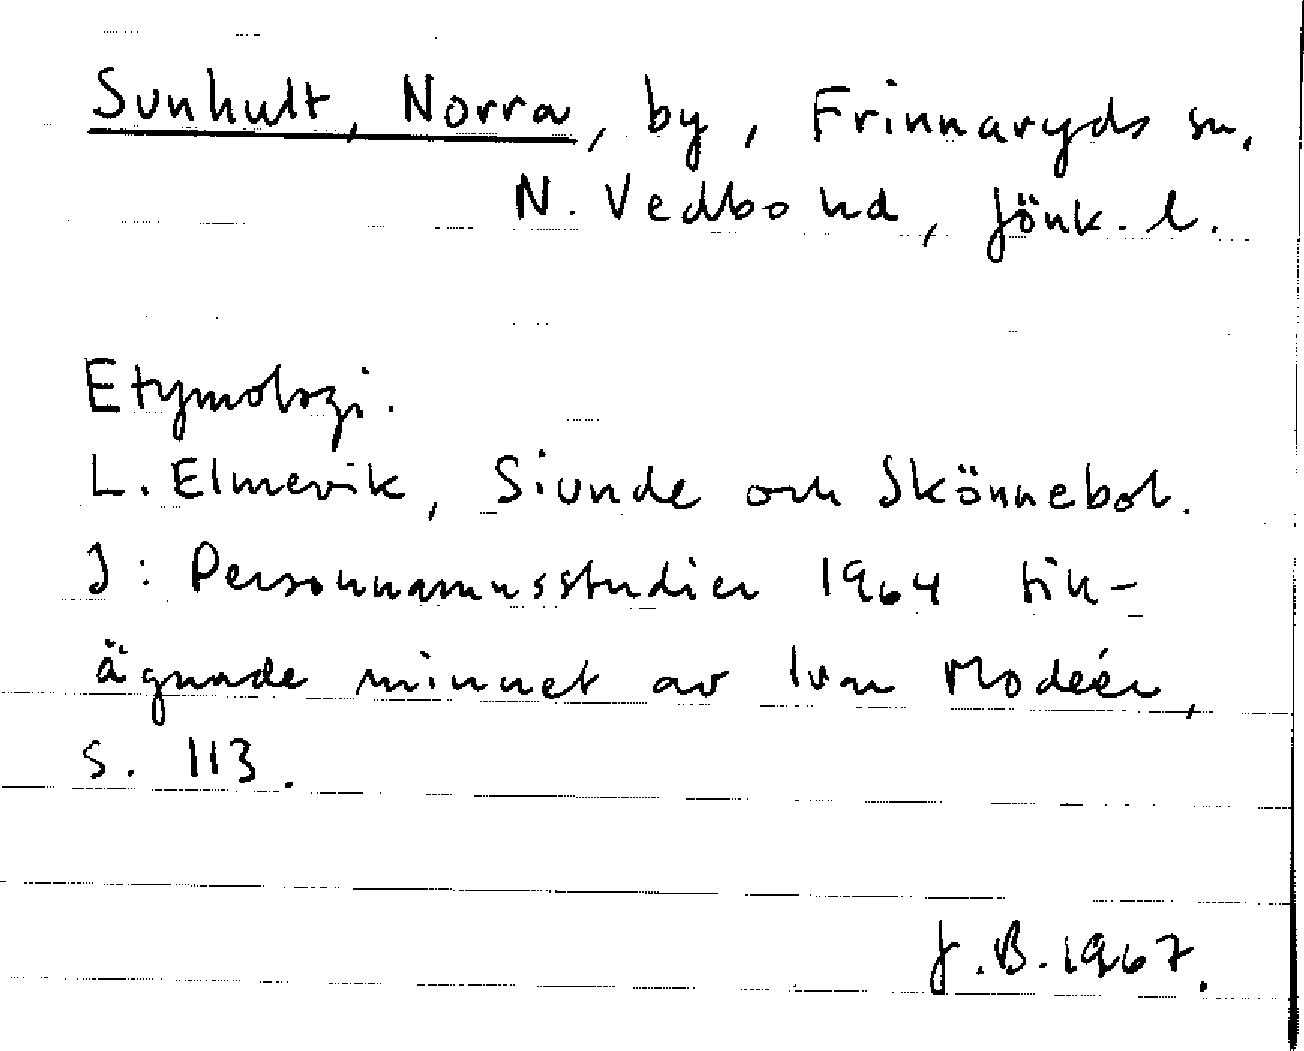 Sunhult, Norra, by, Frinnaryds sn,
N. Vedbo hd, Jönk. l.
Etymologi.
L. Elmevik, Siunde och Skönnebol.
I: Personnamnsstudier 1964 till-
ägnade minnet av Ivar Modéer,
s. 113.
J.B. 1967.